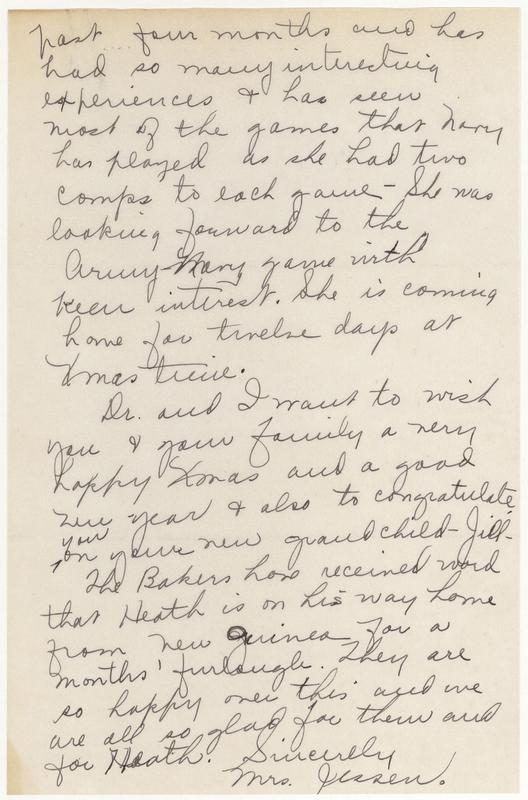 past four months and has
had so many interesting
experiences & has seen
most of the games that Navy
has played as she had two
comps to each game - She was
looking forward to the
Army-Navy game with
keen interest. She is coming
home for twelve days at
Xmas time.
Dr. and I want to wish
you & your family a very
happy Xmas and a good
new year & also to congratulate
you
on your new grandchild - Jill -
The Bakers have received word
that Heath is on his way home
from New Guinea for a
months' furlough. They are
so happy over this and we
are all so glad for them and
for Heath. Sincerely
Mrs. Jessen.